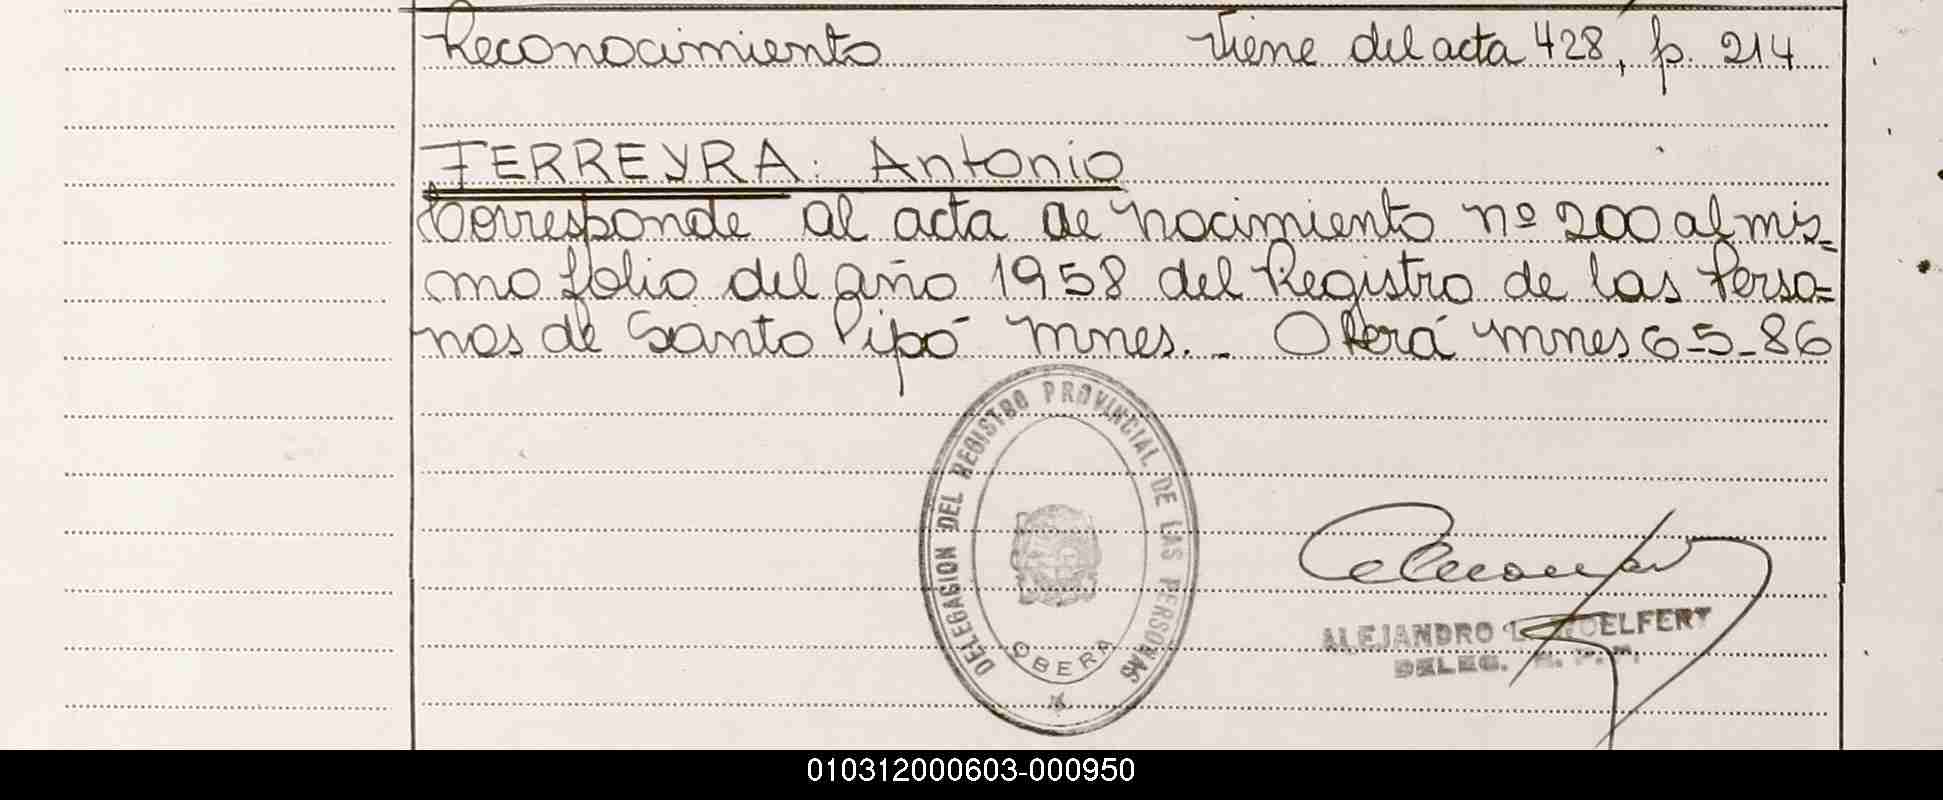 Reconocimiento Viene del acta 428, p. 214
FERREYRA: Antonio
Corresponde al acta de nacimiento nº 200 al mis=
mo folio del año 1958 del Registro de las Perso=
nas de Santo Pipó Mnes. - Oberá Mnes 6-5-86
DELEGACION DEL REGISTRO PROVINCIAL DE LAS PERSONAS
OBERA
ALEJANDRO
DELEG.
010312000603-000950